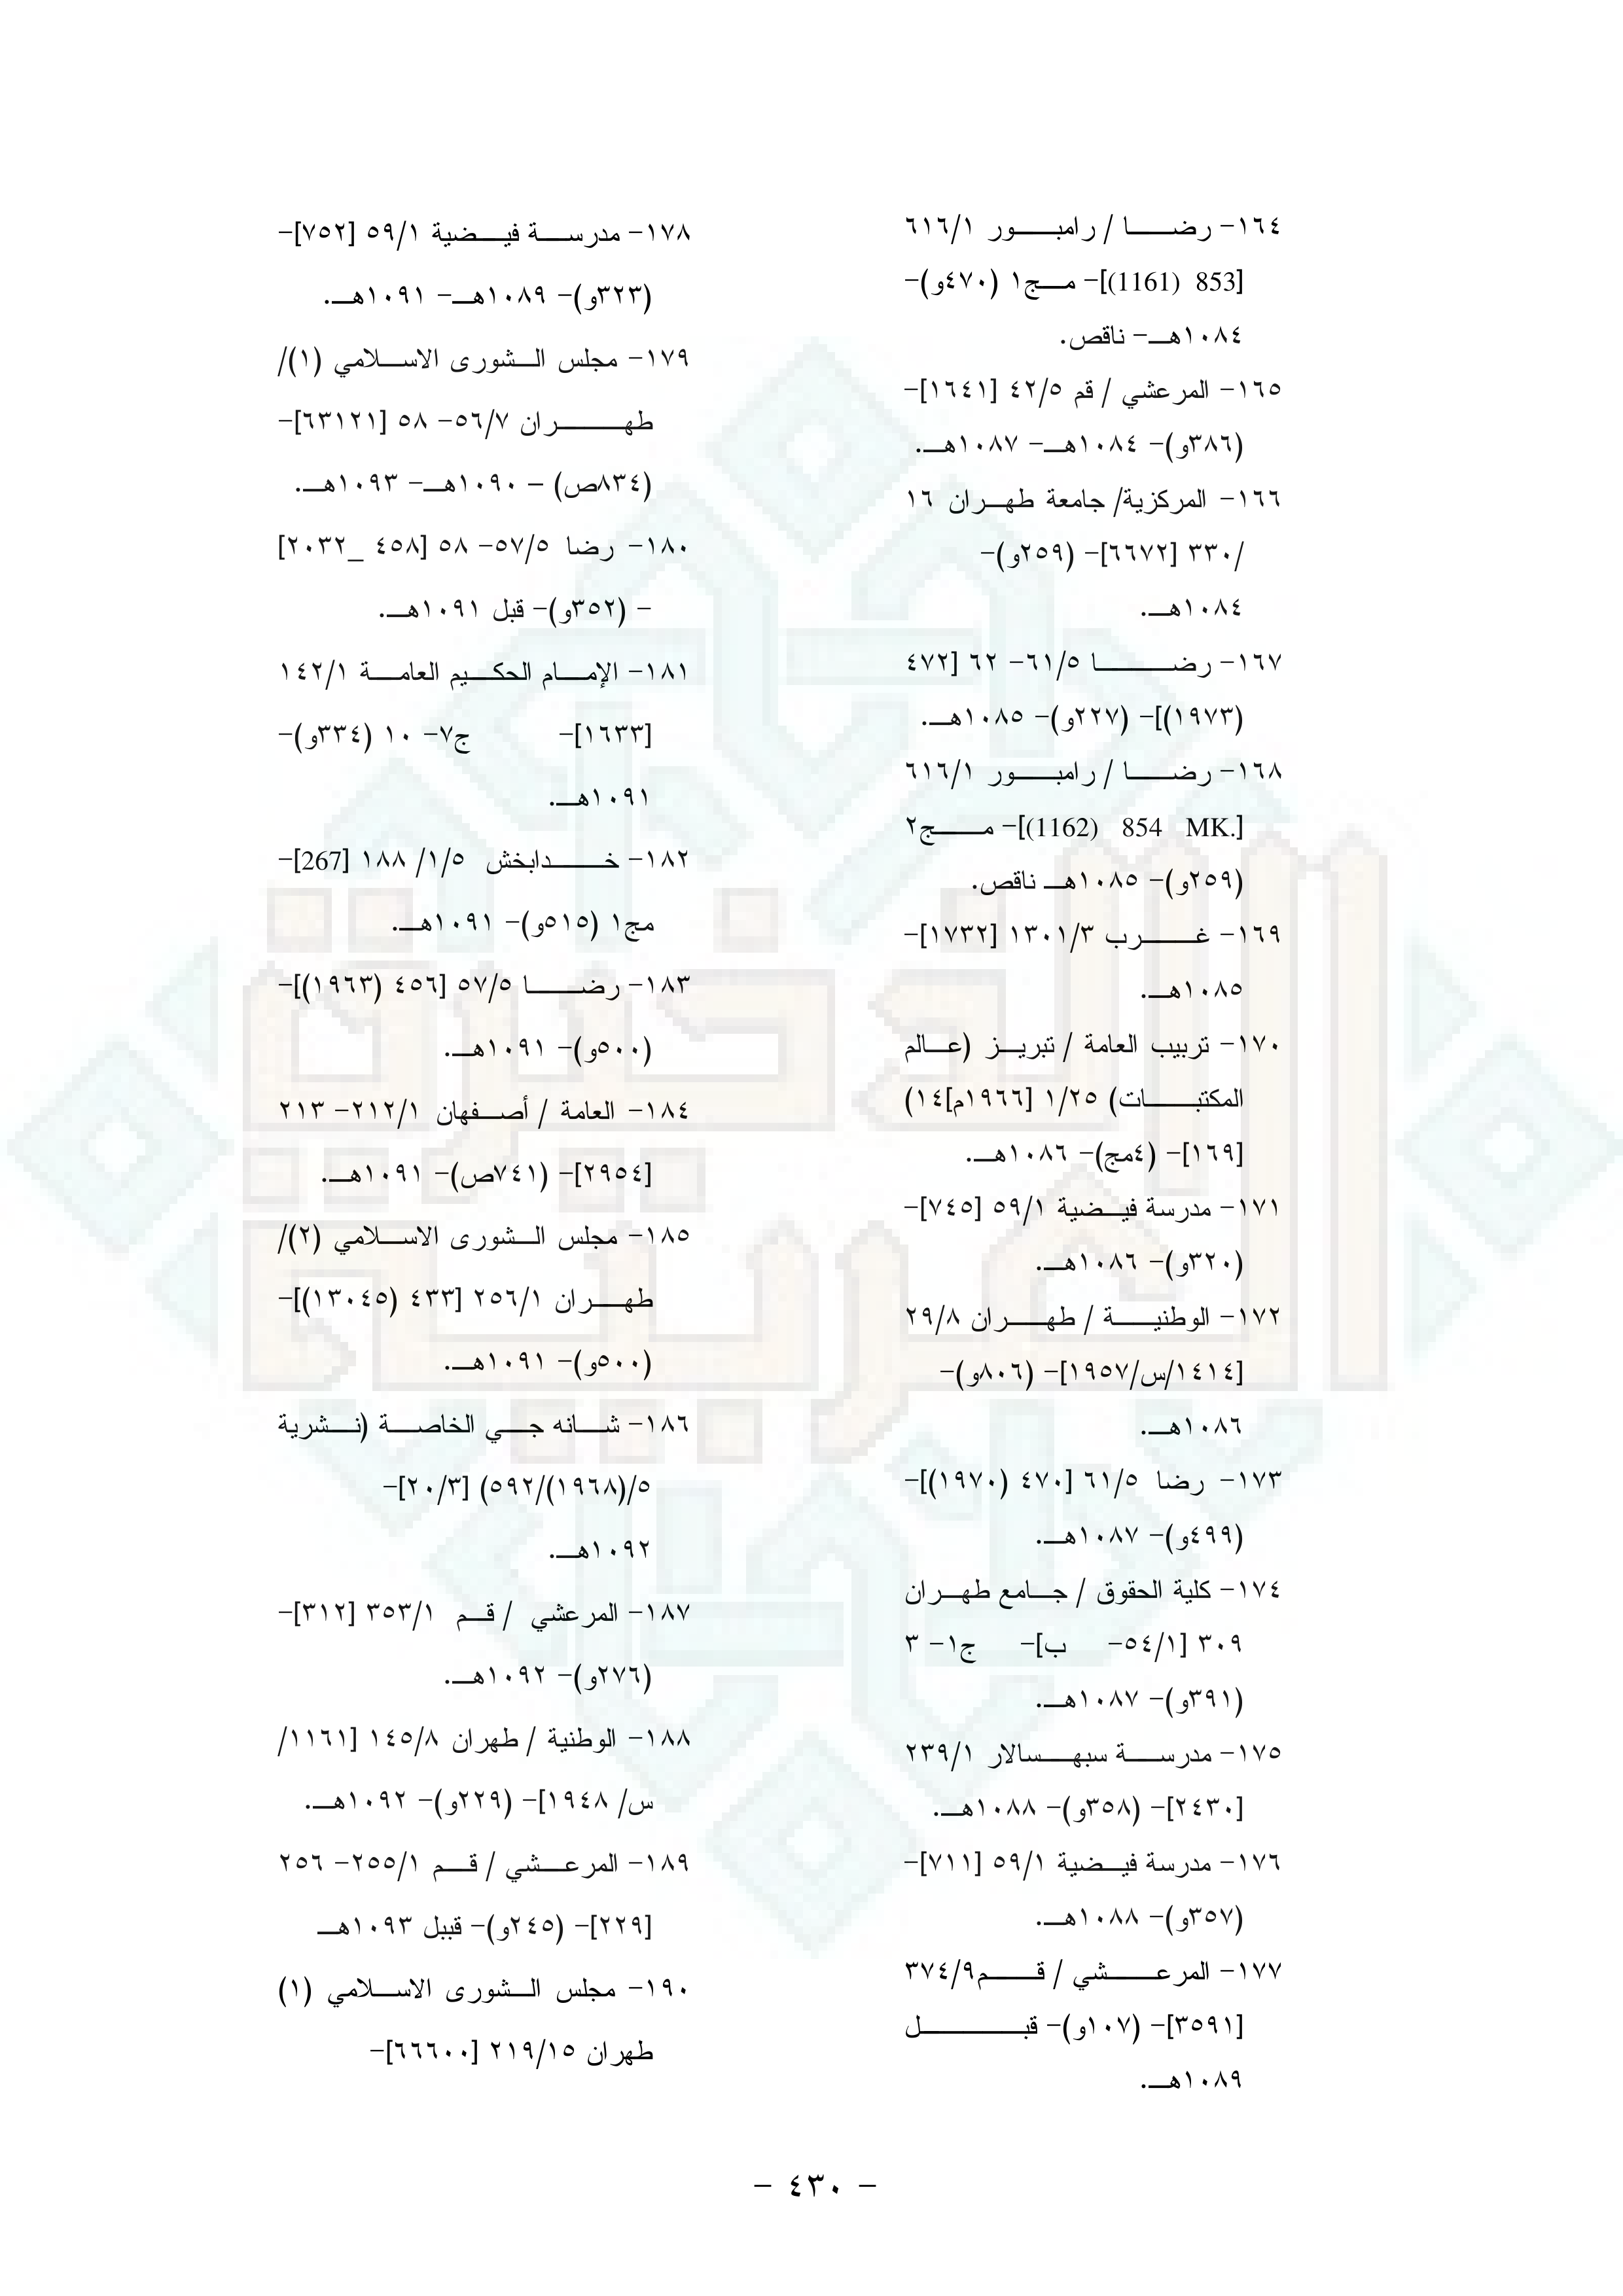 ١٦٤- رضا / رامبور ٦١٦/١
[853 (1161)]- مج١ (٤٧٠و)-
١٠٨٤هـ- ناقص.
١٦٥- المرعشي / قم ٤٢/٥ [١٦٤١]-
(٣٨٦و)- ١٠٨٤هـ- ١٠٨٧هـ.
١٦٦- المركزية/ جامعة طهران ١٦
/٣٣٠ [٦٦٧٢]- (٢٥٩و)-
١٠٨٤هـ.
١٦٧- رضا ٦١/٥- ٦٢ [٤٧٢
(١٩٧٣)]- (٢٢٧و)- ١٠٨٥هـ.
١٦٨- رضا / رامبور ٦١٦/١
[.MK 854 (1162)]- مج٢
(٢٥٩و)- ١٠٨٥هـ ناقص.
١٦٩- غرب ١٣٠١/٣ [١٧٣٢]-
١٠٨٥هـ.
١٧٠- تربيب العامة / تبريز (عالم
المكتبات) ١/٢٥ [١٩٦٦م]١٤)
[١٦٩]- (٤مج)- ١٠٨٦هـ.
١٧١- مدرسة فيضية ٥٩/١ [٧٤٥]-
(٣٢٠و)- ١٠٨٦هـ.
١٧٢- الوطنية / طهران ٢٩/٨
[١٤١٤/س/١٩٥٧]- (٨٠٦و)-
١٠٨٦هـ.
١٧٣- رضا ٦١/٥ [٤٧٠ (١٩٧٠)]-
(٤٩٩و)- ١٠٨٧هـ.
١٧٤- كلية الحقوق / جامع طهران
٣٠٩ [٥٤/١- ب]- ج١- ٣
(٣٩١و)- ١٠٨٧هـ.
١٧٥- مدرسة سبهسالار ٢٣٩/١
[٢٤٣٠]- (٣٥٨و)- ١٠٨٨هـ.
١٧٦- مدرسة فيضية ٥٩/١ [٧١١]-
(٣٥٧و)- ١٠٨٨هـ.
١٧٧- المرعشي / قم٣٧٤/٩
[٣٥٩١]- (١٠٧و)- قبل
١٠٨٩هـ.
١٧٨- مدرسة فيضية ٥٩/١ [٧٥٢]-
(٣٢٣و)- ١٠٨٩هـ- ١٠٩١هـ.
١٧٩- مجلس الشورى الاسلامي (١)/
طهران ٥٦/٧- ٥٨ [٦٣١٢١]-
(٨٣٤ص) – ١٠٩٠هـ- ١٠٩٣هـ.
١٨٠- رضا ٥٧/٥- ٥٨ [٤٥٨ _٢٠٣٢]
- (٣٥٢و)- قبل ١٠٩١هـ.
١٨١- الإمام الحكيم العامة ١٤٢/١
[١٦٣٣]- ج٧- ١٠ (٣٣٤و)-
١٠٩١هـ.
١٨٢- خدابخش ١/٥/ ١٨٨ [267]-
مج١ (٥١٥و)- ١٠٩١هـ.
١٨٣- رضا ٥٧/٥ [٤٥٦ (١٩٦٣)]-
(٥٠٠و)- ١٠٩١هـ.
١٨٤- العامة / أصفهان ٢١٢/١- ٢١٣
[٢٩٥٤]- (٧٤١ص)- ١٠٩١هـ.
١٨٥- مجلس الشورى الاسلامي (٢)/
طهران ٢٥٦/١ [٤٣٣ (١٣٠٤٥)]-
(٥٠٠و)- ١٠٩١هـ.
١٨٦- شانه جي الخاصة (نشرية
٥/(١٩٦٨)/٥٩٢) [٢٠/٣]-
١٠٩٢هـ.
١٨٧- المرعشي / قم ٣٥٣/١ [٣١٢]-
(٢٧٦و)- ١٠٩٢هـ.
١٨٨- الوطنية / طهران ١٤٥/٨ [١١٦١/
س/ ١٩٤٨]- (٢٢٩و)- ١٠٩٢هـ.
١٨٩- المرعشي / قم ٢٥٥/١- ٢٥٦
[٢٢٩]- (٢٤٥و)- قبيل ١٠٩٣هـ
١٩٠- مجلس الشورى الاسلامي (١)
طهران ٢١٩/١٥ [٦٦٦٠٠]-
- ٤٣٠ -